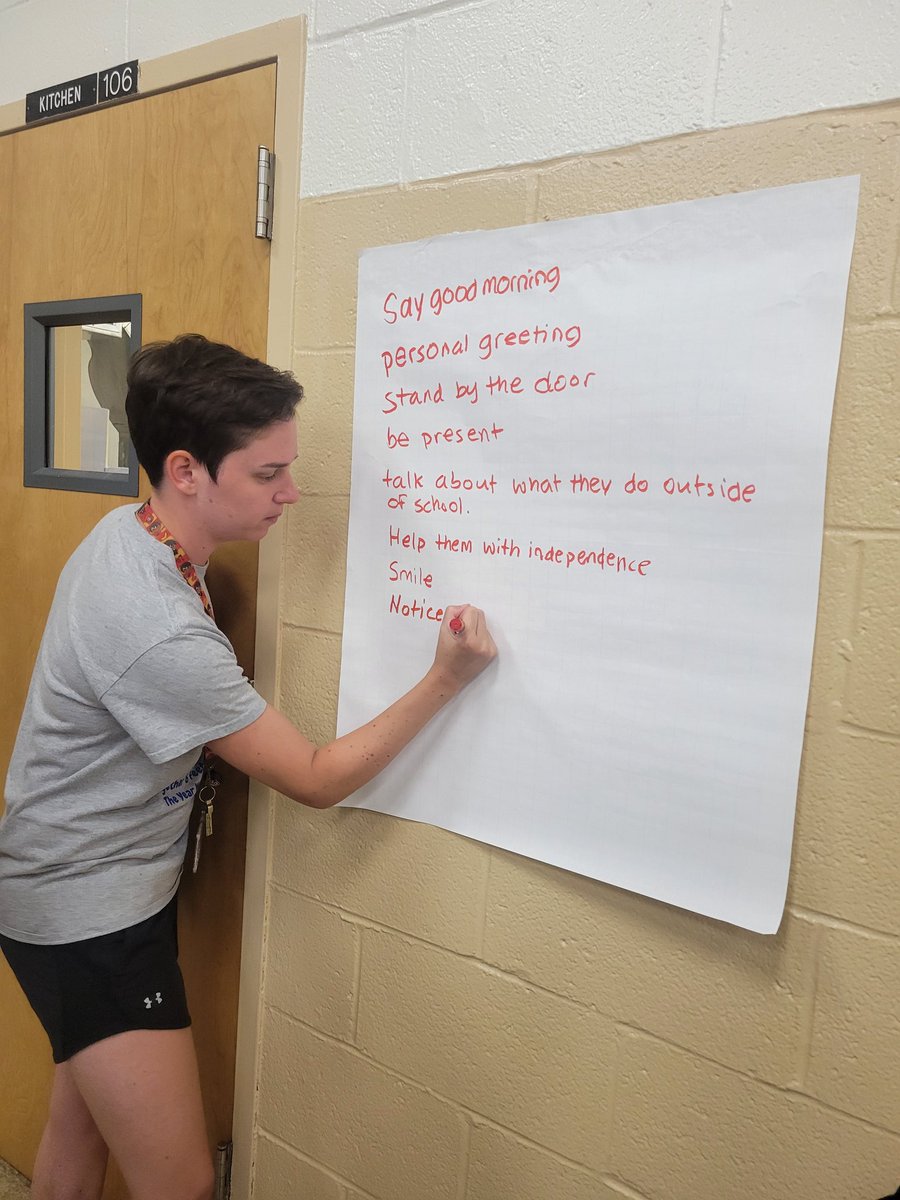 KITCHEN 106
Say good morning
personal greeting
stand by the door
be present
talk about what they do outside
of school.
Help them with independence
Smile
Notice
The Year